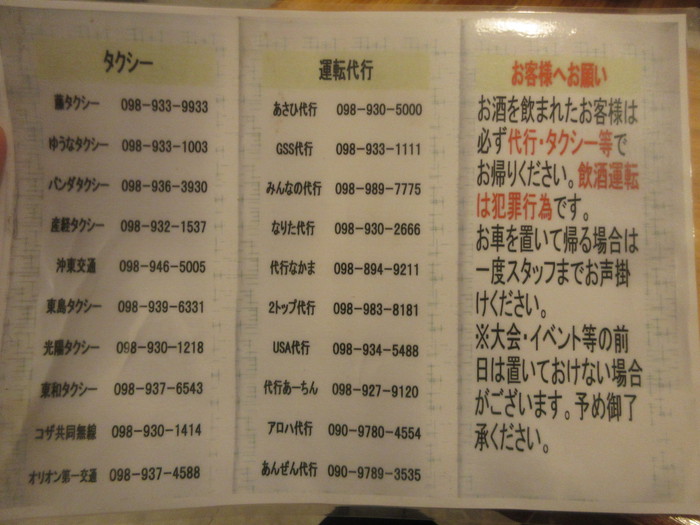 タクシー
藤タクシー 098-933-9933
ゆうなタクシー 098-933-1003
パンダタクシー 098-936-3930
産経タクシー 098-932-1537
沖東交通 098-946-5005
東島タクシー 098-939-6331
光陽タクシー 098-930-1218
東和タクシー 098-937-6543
コザ共同無線 098-930-1414
オリオン第一交通 098-937-4588
運転代行
あさひ代行 098-930-5000
GSS代行 098-933-1111
みんなの代行 098-989-7775
なりた代行 098-930-2666
代行なかま 098-894-9211
2トップ代行 098-983-8181
USA代行 098-934-5488
代行あーちん 098-927-9120
アロハ代行 090-9780-4554
あんぜん代行 090-9789-3535
お客様へお願い
お酒を飲まれたお客様は
必ず代行・タクシー等で
お帰りください。飲酒運転
は犯罪行為です。
お車を置いて帰る場合は
一度スタッフまでお声掛
けください。
※大会・イベント等の前
日は置いておけない場合
がございます。予め御了
承ください。